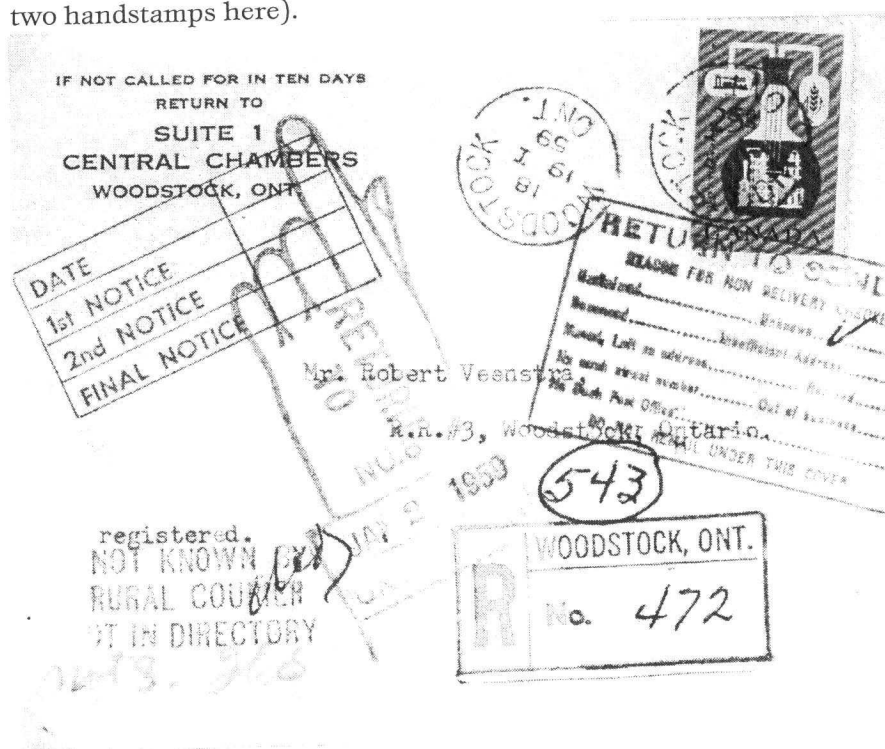 two handstamps here).
IF NOT CALLED FOR IN TEN DAYS
RETURN TO
SUITE 1
CENTRAL CHAMBERS
WOODSTOCK, ONT.
WOODSTOCK
18
19 I
59
ONT.
25¢
CANADA
DATE
1st NOTICE
2nd NOTICE
FINAL NOTICE
RETURN TO SEND
REASON FOR NON DELIVERY CHECKED
Unclaimed
Unknown
Insufficient Address
Moved, Left no address
No such street number
Out of business
No Such Post Office
DO NOT REMAIL UNDER THIS COVER
NO.
Mr. Robert Veenstra,
R.R.#3, Woodstock, Ontario.
JAN 2 1959
543
registered.
NOT KNOWN BY
RURAL COURIER
OT IN DIRECTORY
WOODSTOCK, ONT.
R
No. 472